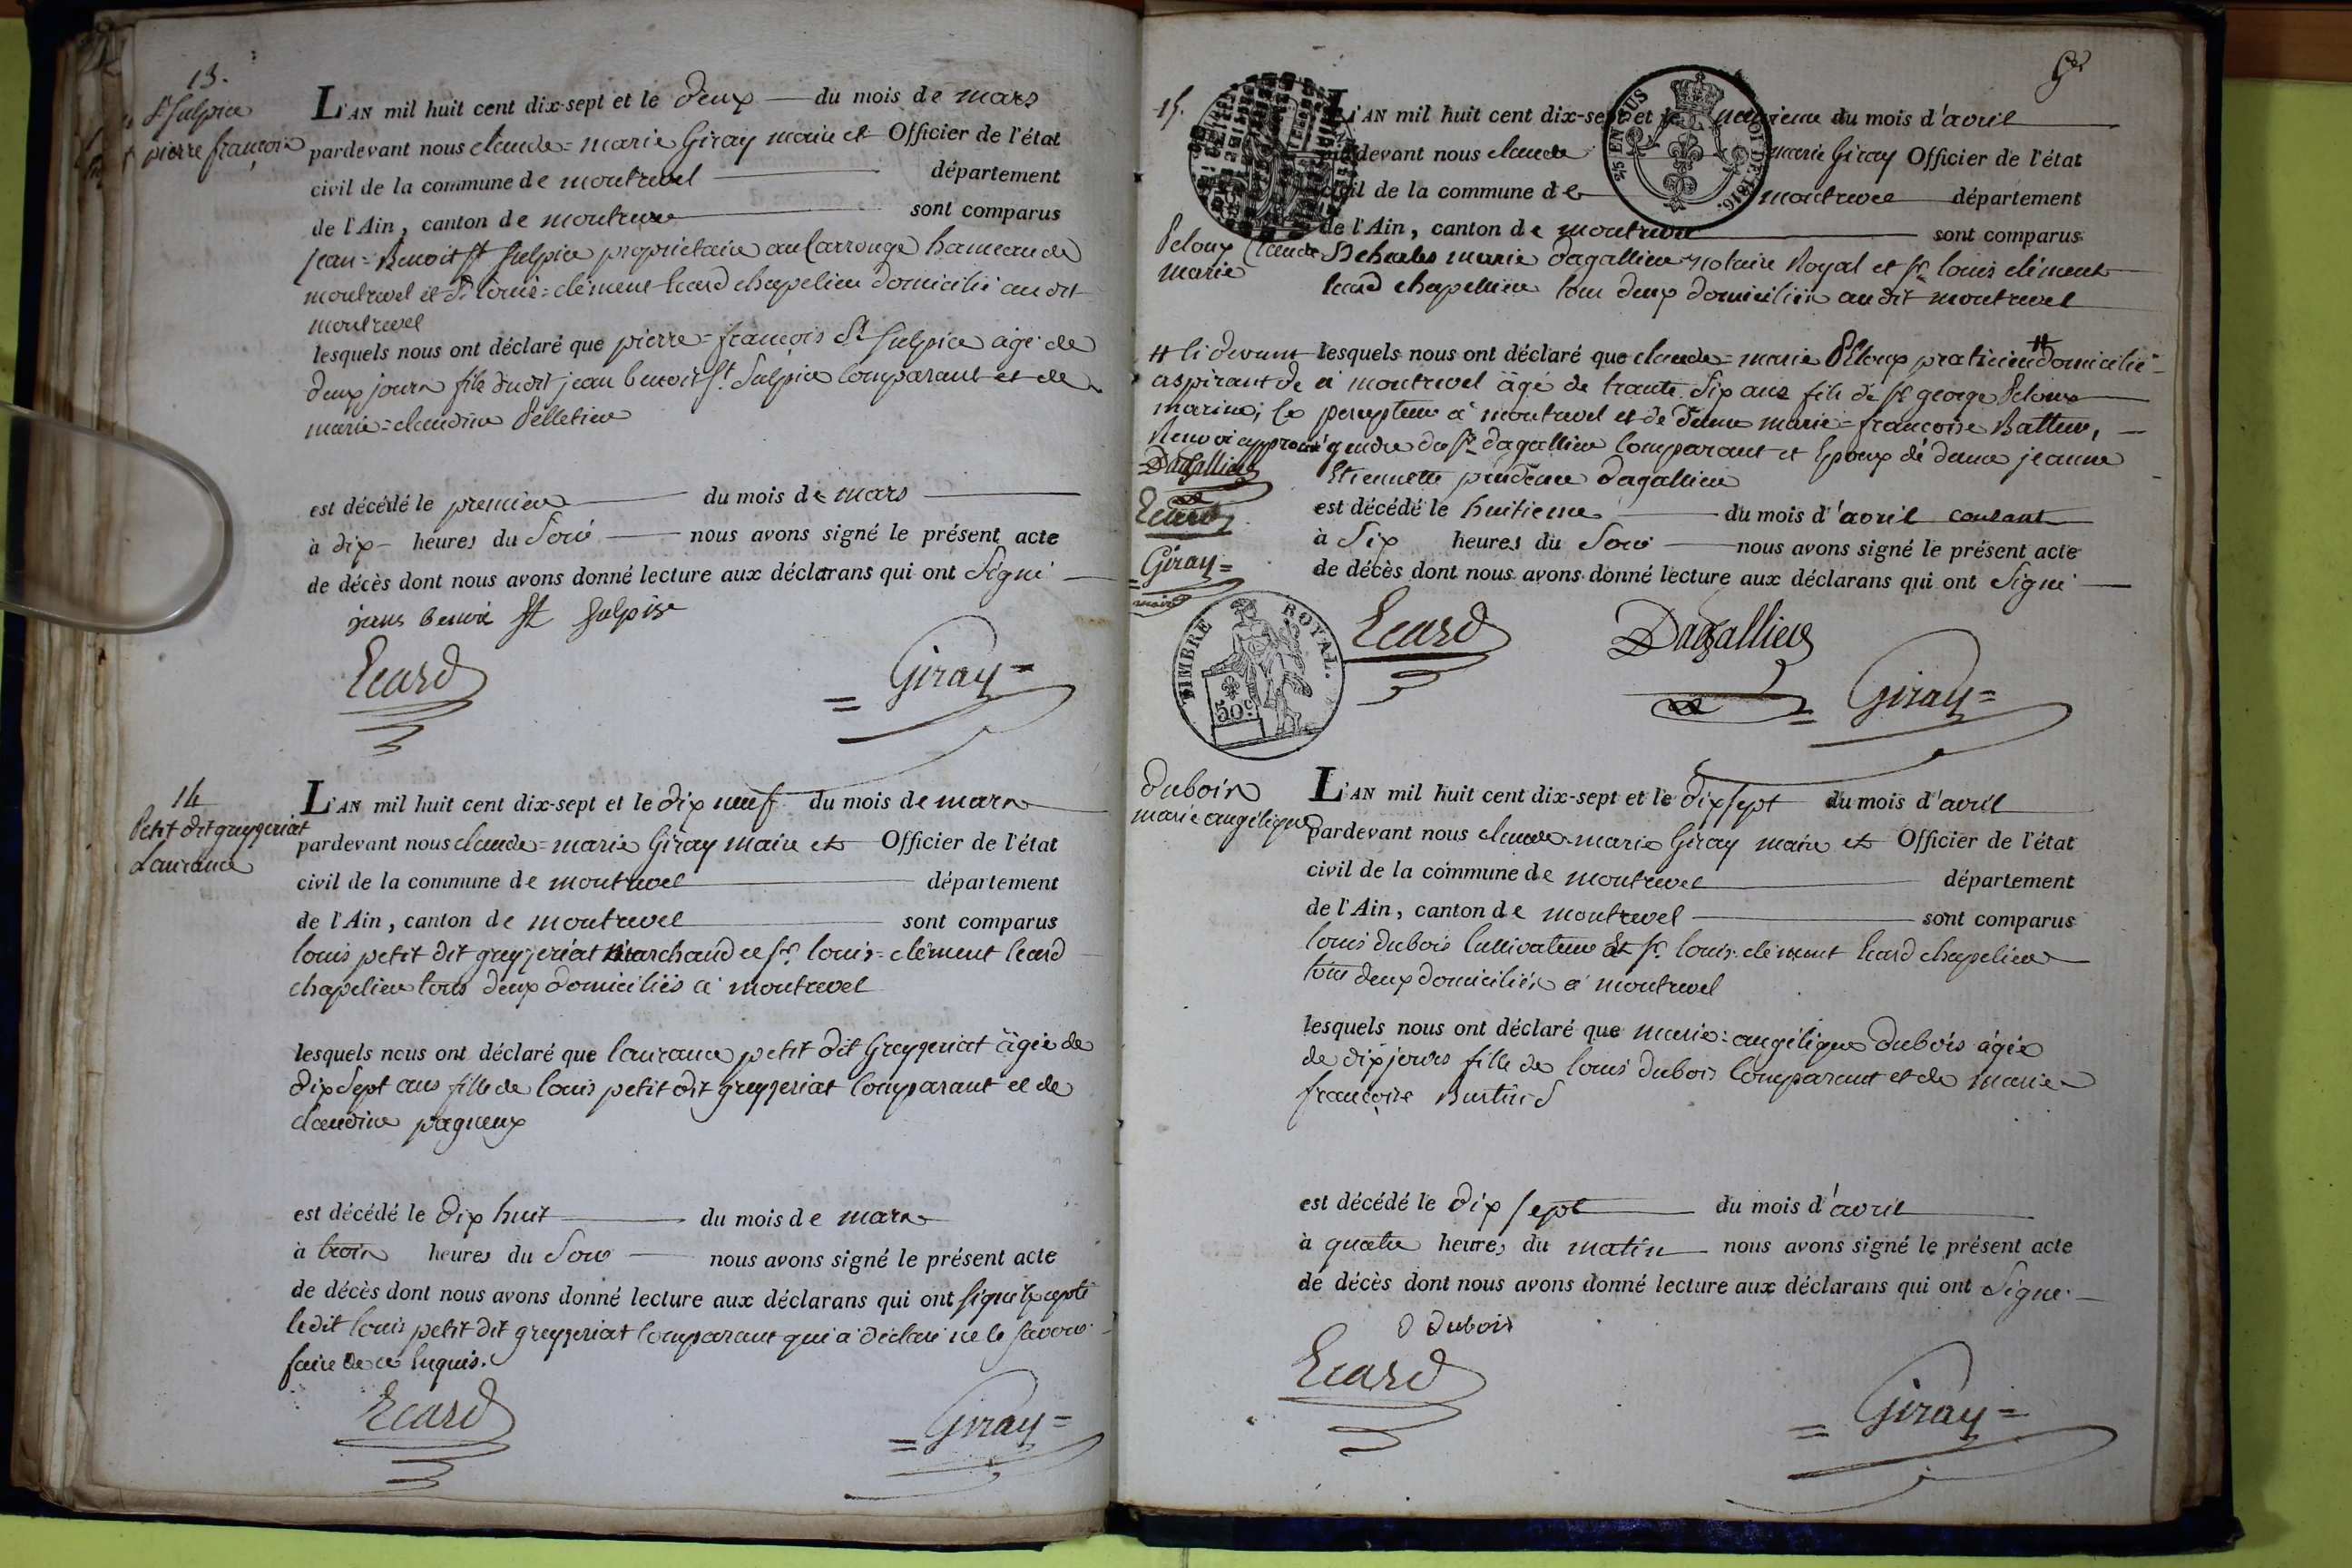 13.
St Sulpice
pierre françois
L'AN mil huit cent dix-sept et le deux du mois de mars
pardevant nous claude=marie Giray maire et Officier de l'état
civil de la commune de montrevel département
de l'Ain, canton de montrevel sont comparus
jean=Benoit St Sulpice propriétaire au Carrouge hameau de
montrevel et Sr louis=clément Ecard chapelier domicilié au dit
montrevel
lesquels nous ont déclaré que pierre=françois St Sulpice agé de
deux jours fils dudit jean benoit St. Sulpice Comparant et de
marie=claudine Pelletier
est décédé le premier du mois de mars
à dix heures du Soir nous avons signé le présent acte
de décès dont nous avons donné lecture aux déclarans qui ont Signé
jean benoi St Sulpise
Ecard
=Giray=
14
Petit dit greyzeriat
Laurance
L'AN mil huit cent dix-sept et le dix neuf du mois de mars
pardevant nous claude=marie Giray maire et Officier de l'état
civil de la commune de montrevel département
de l'Ain, canton de montrevel sont comparus
louis petit dit greyzeriat Marchand et Sr. louis=clément Ecard
chapelier tous deux domiciliés à montrevel
lesquels nous ont déclaré que laurance petit dit Greyzeriat âgée de
dix Sept ans fille de louis petit dit greyzeriat Comparant et de
claudine pagneux
est décédé le dix huit du mois de mars
à trois heures du Soir nous avons signé le présent acte
de décès dont nous avons donné lecture aux déclarans qui ont signé Excepté
ledit louis petit dit greyzeriat Comparant qui a déclaré ne le Savoir
faire de ce Enquis.
Ecard
=Giray=
15.
Peloux Claude
marie
L'AN mil huit cent dix-sept et le neuvieme du mois d'avril
pardevant nous claude marie Giray Officier de l'état
civil de la commune de montrevel département
de l'Ain, canton de montrevel sont comparus
Sr charles marie Dagallier notaire Royal et Sr. louis clément
Ecard chapellier tous deux domiciliés au dit montrevel
lesquels nous ont déclaré que claude=marie Peloux praticien # domicilié
à montrevel âgé de trante Six ans fils de Sr george Peloux
percepteur à montrevel et de Dame marie=francoise Batteur,
gendre du Sr Dagallier Comparant et Epoux de dame jeanne
Etiennette prudence Dagallier
# Ci devant
aspirant de
marine; le
Renvoi approuvé
Dagallier
Ecard
=Giray=
maire
est décédé le huitieme du mois d'avril courant
à Six heures du Soir nous avons signé le présent acte
de décès dont nous avons donné lecture aux déclarans qui ont Signé
Ecard
Dagallier
=Giray=
TIMBRE ROYAL.
50c
Dubois
marie angélique
L'AN mil huit cent dix-sept et le dix sept du mois d'avril
pardevant nous claude=marie Giray maire et Officier de l'état
civil de la commune de montrevel département
de l'Ain, canton de montrevel sont comparus
louis dubois Cultivateur Et Sr. louis-clément Ecard chapelier
tous deux domiciliés à montrevel
lesquels nous ont déclaré que marie=angélique dubois âgée
de dix jours fille de louis dubois Comparant et de marie
francoise
est décédé le dix sept du mois d'avril
à quatre heures du matin nous avons signé le présent acte
de décès dont nous avons donné lecture aux déclarans qui ont Signé
Dubois
Ecard
=Giray=